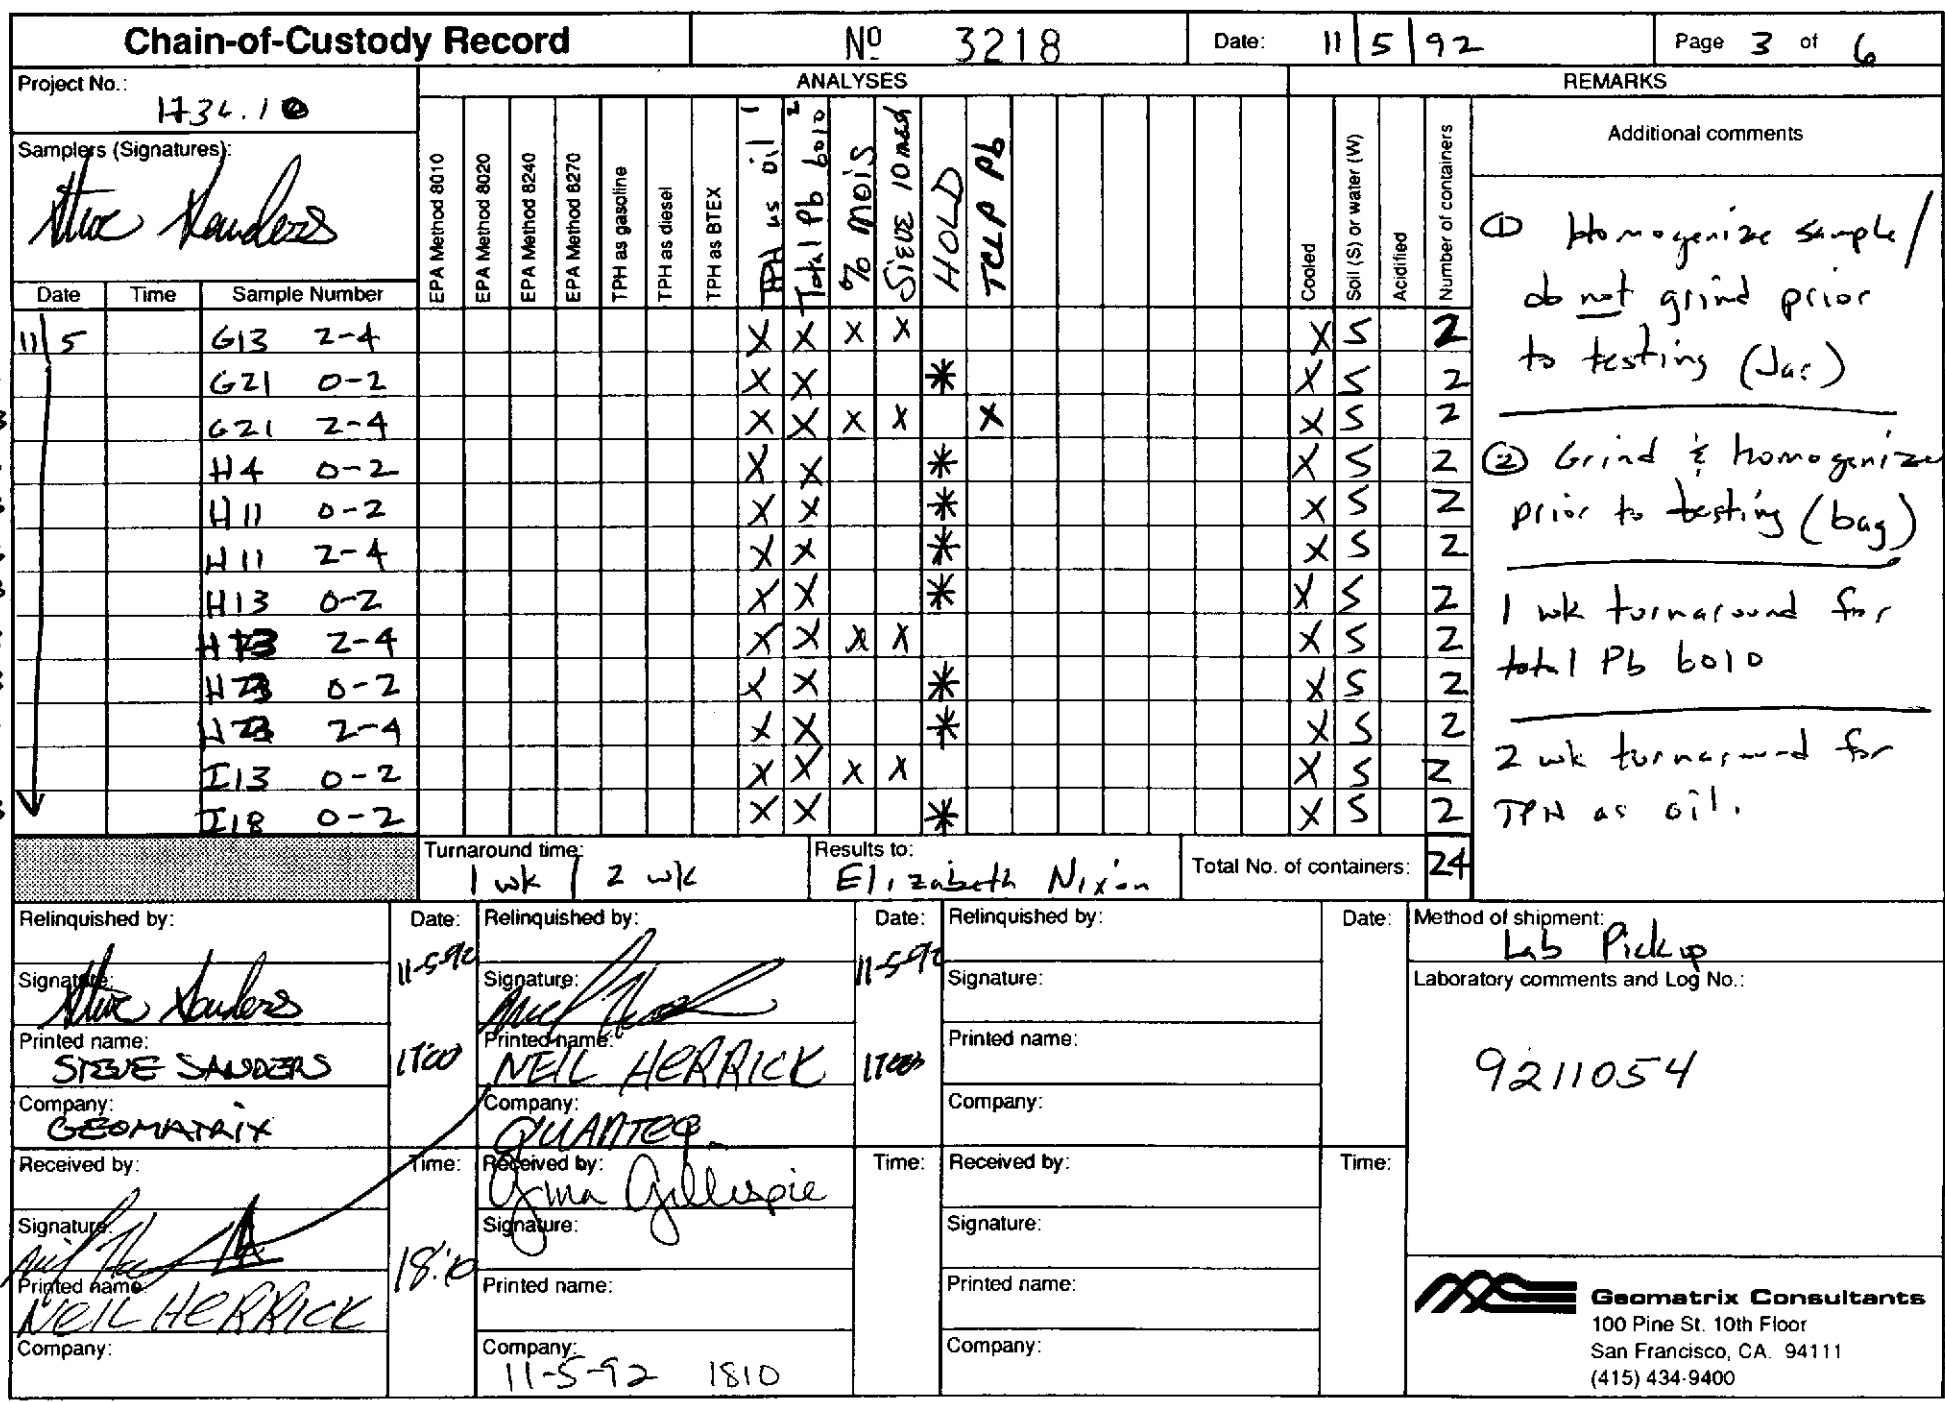 Chain-of-Custody Record Nº 3218 Date: 11/5/92 Page 3 of 6
Project No.: ANALYSES REMARKS
Samplers (Signatures):
Steve Sanders
EPA Method 8010
EPA Method 8020
EPA Method 8240
EPA Method 8270
TPH as gasoline
TPH as diesel
TPH as BTEX
TPH as oil 1
Total Pb 6010 2
% Mois
Sieve 10 mesh
HOLD
TCLP Pb
Cooled
Soil (S) or water (W)
Acidified
Number of containers
Additional comments
Date Time Sample Number
11/5 G13 2-4 X X X X X S 2
G21 0-2 X X * X S 2
G21 2-4 X X X X X X S 2
H4 0-2 X X * X S 2
H11 0-2 X X * X S 2
H11 2-4 X X * X S 2
H13 0-2 X X * X S 2
H13 2-4 X X X X X S 2
H23 0-2 X X * X S 2
H23 2-4 X X * X S 2
I13 0-2 X X X X X S 2
I18 0-2 X X * X S 2
① Homogenize sample/
do not grind prior
to testing (Jar)
② Grind & homogenize
prior to testing (bag)
1 wk turnaround for
total Pb 6010
2 wk turnaround for
TPH as oil.
Turnaround time: 1 wk / 2 wk
Results to: Elizabeth Nixon
Total No. of containers: 24
Relinquished by: Date: 11-5-92
Signature: Steve Sanders
Printed name: STEVE SANDERS 1700
Company: GEOMATRIX
Received by: Time:
Signature: 18:10
Printed name: NEIL HERRICK
Company:
Relinquished by: Date: 11-5-92
Signature:
Printed name: NEIL HERRICK
Company: QUANTEQ
Received by: Time:
Gina Gillespie
Signature:
Printed name:
Company: 11-5-92 1810
Relinquished by: Date:
Signature:
Printed name:
Company:
Received by: Time:
Signature:
Printed name:
Company:
Method of shipment: Lab Pickup
Laboratory comments and Log No.:
9211054
Geomatrix Consultants
100 Pine St. 10th Floor
San Francisco, CA. 94111
(415) 434-9400